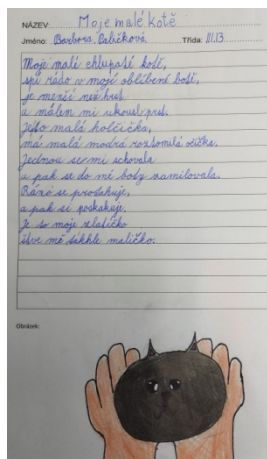 NÁZEV: Moje malé kotě
Jméno: Barbora Paličková Třída: III.B
Moje malé chlupaté kotě,
spí rádo v mojí oblíbené botě,
je menší než kret
a málem mi ukousl pret.
Je to malá holčička,
má malá modrá roztomilá očička.
Jednou se mi schovala
a pak se do mé boty zamilovala.
Ráno se protahuje,
a pak si poskakuje.
Je to moje zlatíčko
štve mě takhle maličko.
Obrázek: